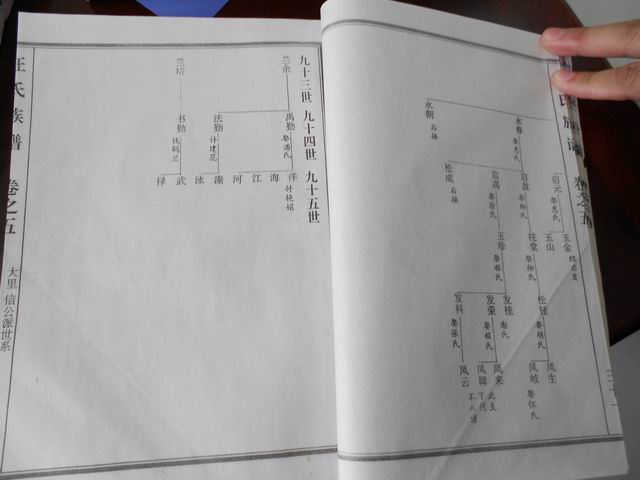 氏族谱 卷之五
永朝 启操
永春 娶尧氏
启元 娶尧氏
启盈 娶柳氏
启高 娶徐氏
松成 启操
玉金 绍启发
玉山
桂堂 娶柳氏
玉珍 娶程氏
松桂 娶胡氏
发桂 谢氏
发荣 娶程氏
发科 娶张氏
凤生
凤岐 娶怀氏
凤来 此支
凤舞 下代
凤云 不入谱
九十三世 九十四世 九十五世
兰余
兰培
禹勤 娶潘氏
法勤 许建花
书勤 钱鹤兰
洋 付艳娟
海
江
河
溱
泳
武
禄
汪氏族谱 卷之五 大里 信公派世系